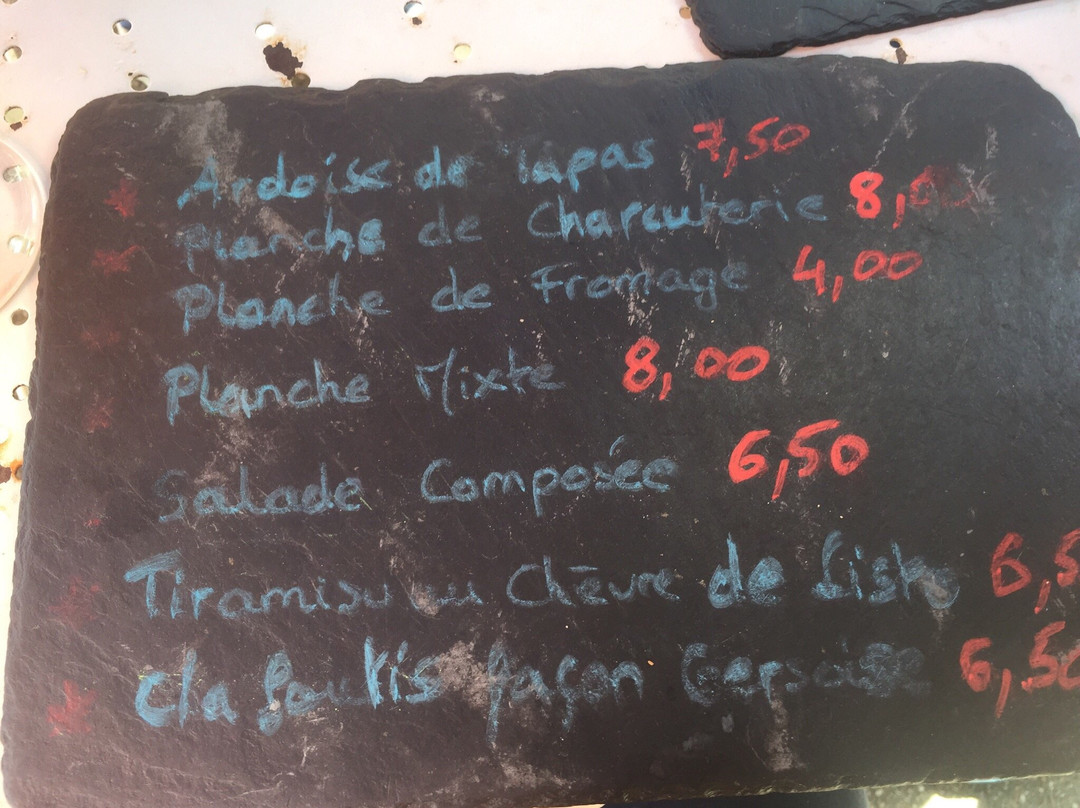 Ardoise de Tapas 7,50
Planche de Charcuterie 8,00
Planche de Fromage 4,00
Planche Mixte 8,00
Salade Composée 6,50
Tiramisu au Chèvre de 6,5
Clafoutis façon Gersoise 6,50